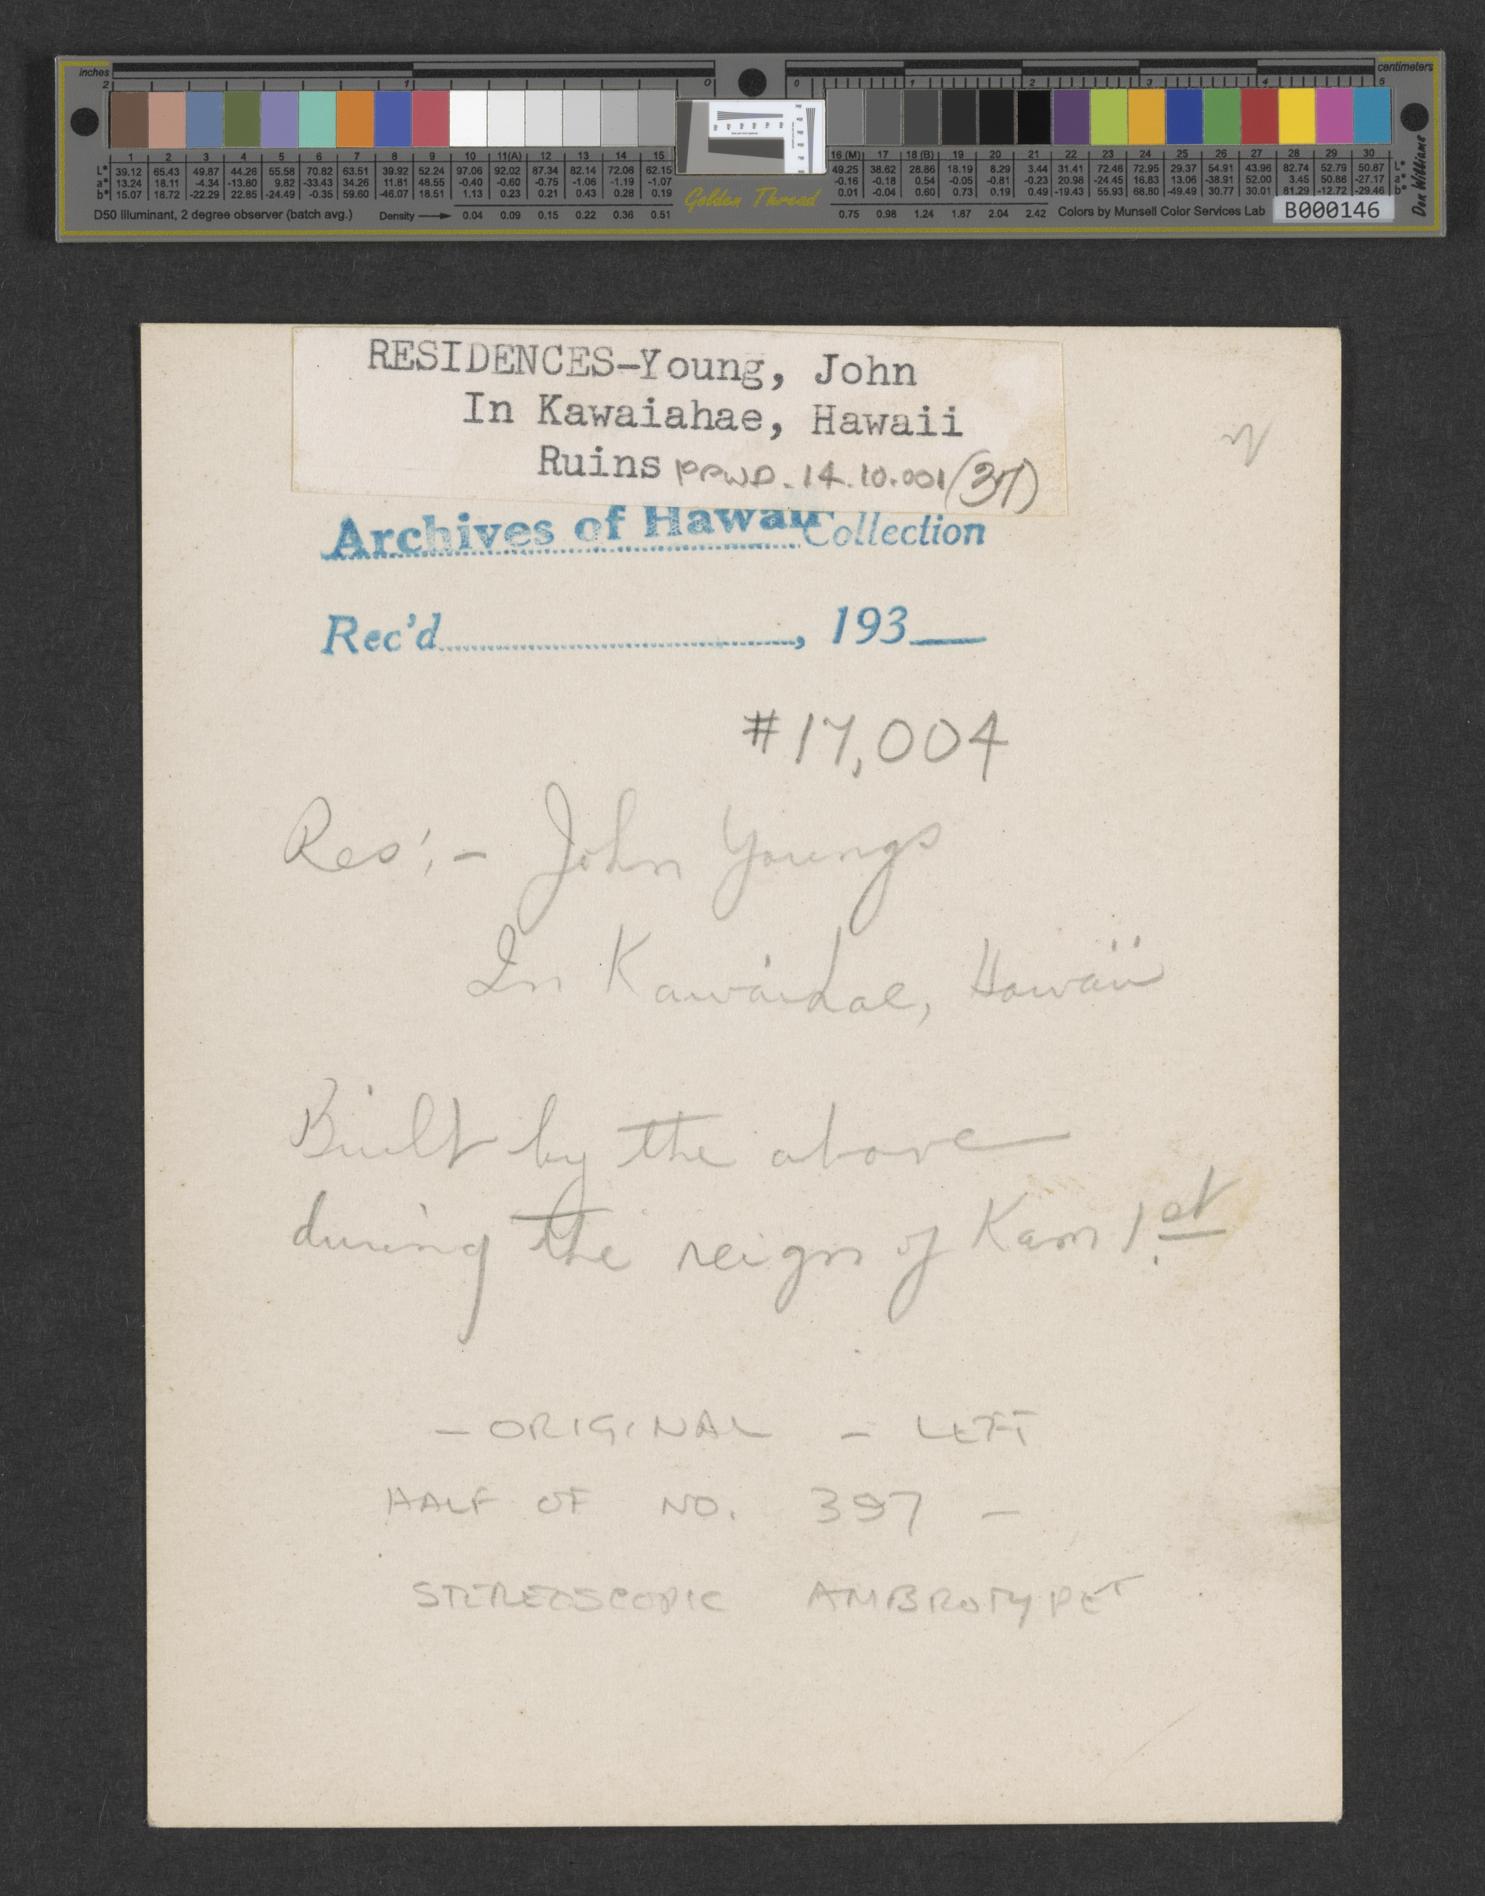 inches
centimeters
2 1 0 0 1 2 3 4 5
1 2 3 4 5 6 7 8 9 10 11(A) 12 13 14 15 16 (M) 17 18 (B) 19 20 21 22 23 24 25 26 27 28 29 30
L* 39.12 65.43 49.87 44.26 55.58 70.82 63.51 39.92 52.24 97.06 92.02 87.34 82.14 72.06 62.15 49.25 38.62 28.86 18.19 8.29 3.44 31.41 72.46 72.95 29.37 54.91 43.96 82.74 52.79 50.87 L*
a* 13.24 18.11 -4.34 -13.80 9.82 -33.43 34.26 11.81 48.55 -0.40 -0.60 -0.75 -1.06 -1.19 -1.07 -0.16 -0.18 0.54 -0.05 -0.81 -0.23 20.98 -24.45 16.83 13.06 -38.91 52.00 3.45 50.88 -27.17 a*
b* 15.07 18.72 -22.29 22.85 -24.49 -0.35 59.60 -46.07 18.51 1.13 0.23 0.21 0.43 0.28 0.19 0.01 -0.04 0.60 0.73 0.19 0.49 -19.43 55.93 68.80 -49.49 30.77 30.01 81.29 -12.72 -29.46 b*
D50 Illuminant, 2 degree observer (batch avg.) Density 0.04 0.09 0.15 0.22 0.36 0.51 Golden Thread 0.75 0.98 1.24 1.67 2.04 2.42 Colors by Munsell Color Services Lab B000146
Don Williams
RESIDENCES-Young, John
In Kawaiahae, Hawaii
Ruins PPWD. 14.10.001 (37)
Archives of Hawaii Collection
Rec'd, 193
#17,004
Res:- John Youngs
In Kawaihae, Hawaii
Built by the above
during the reign of Kam 1st.
- ORIGINAL - LEFT
HALF OF NO. 397 -
STEREOSCOPIC AMBROTYPE